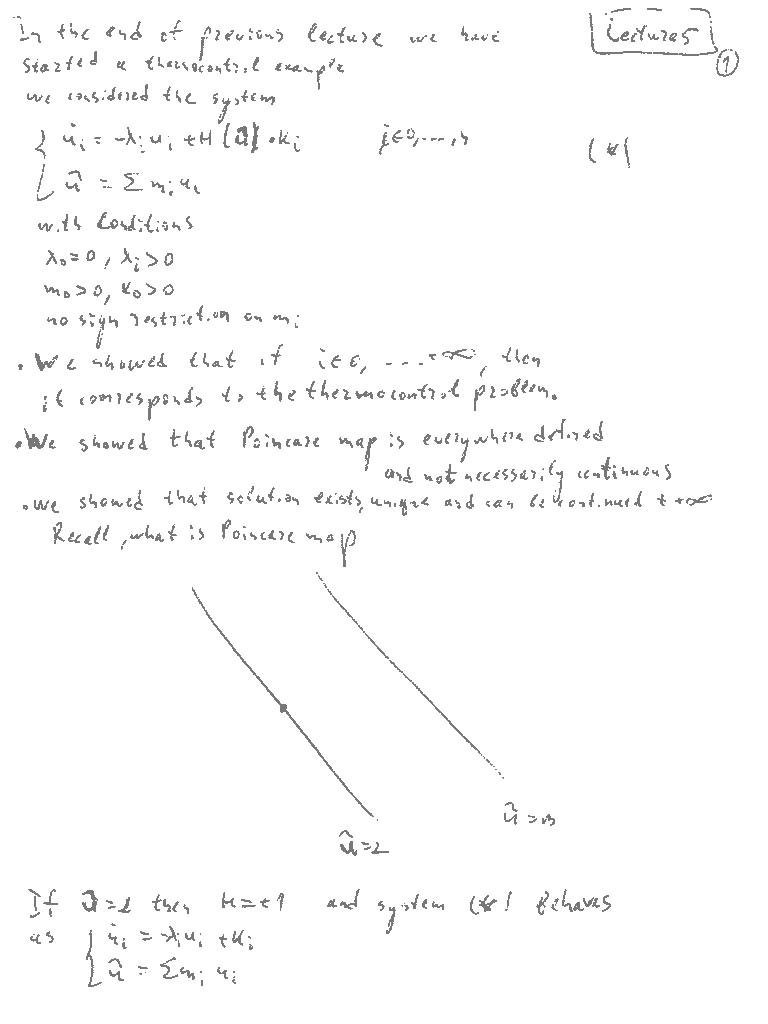 Lecture 5
①
In the end of previous lecture we have
started a thermocontrol example
we considered the system
u̇ᵢ = -λᵢuᵢ + H(û)·Kᵢ i∈0,...,n (*)
û = Σmᵢuᵢ
with conditions
λ₀=0, λᵢ>0
m₀>0, K₀>0
no sign restriction on mᵢ
• We showed that if i∈0, ...+∞, then
it corresponds to the thermocontrol problem.
• We showed that Poincare map is everywhere defined
and not necessarily continuous
• We showed that solution exists, unique and can be continued t +∞
Recall, what is Poincare map
û=β
û=2
If û=2 then H=+1 and system (*) behaves
as u̇ᵢ = -λᵢuᵢ + Kᵢ
û = Σmᵢ uᵢ